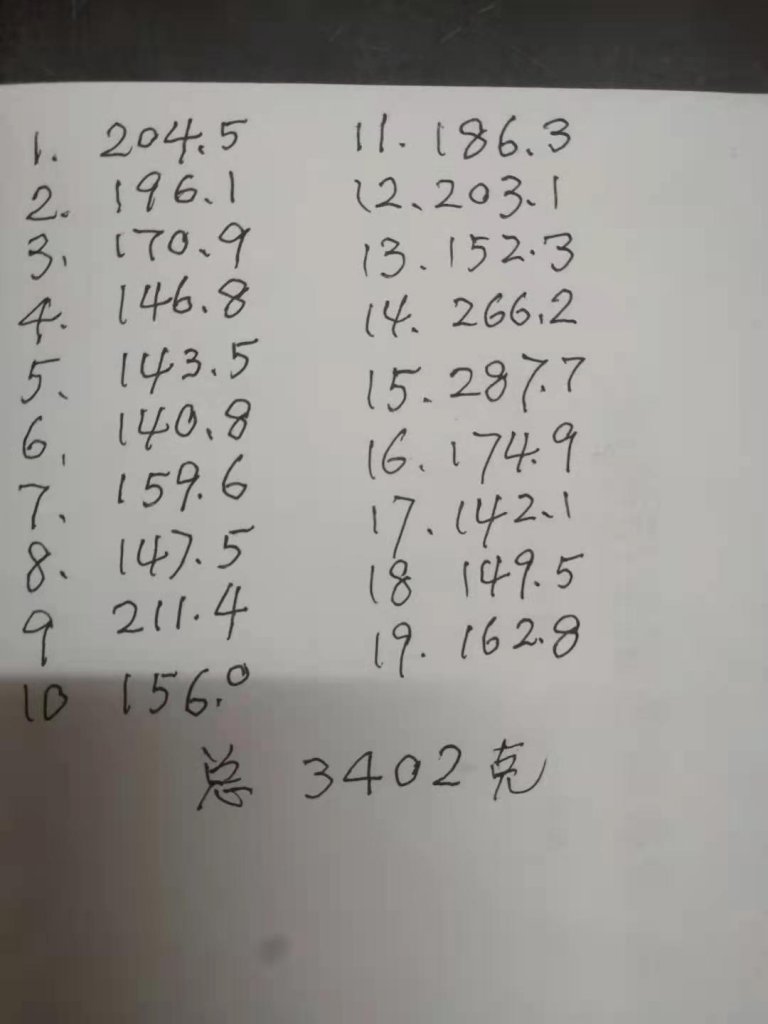 1. 204.5
2. 196.1
3. 170.9
4. 146.8
5、 143.5
6、 140.8
7、 159.6
8、 147.5
9 211.4
10 156.0
11. 186.3
12、203.1
13. 152.3
14. 266.2
15. 287.7
16. 174.9
17. 142.1
18 149.5
19. 162.8
总 3402克